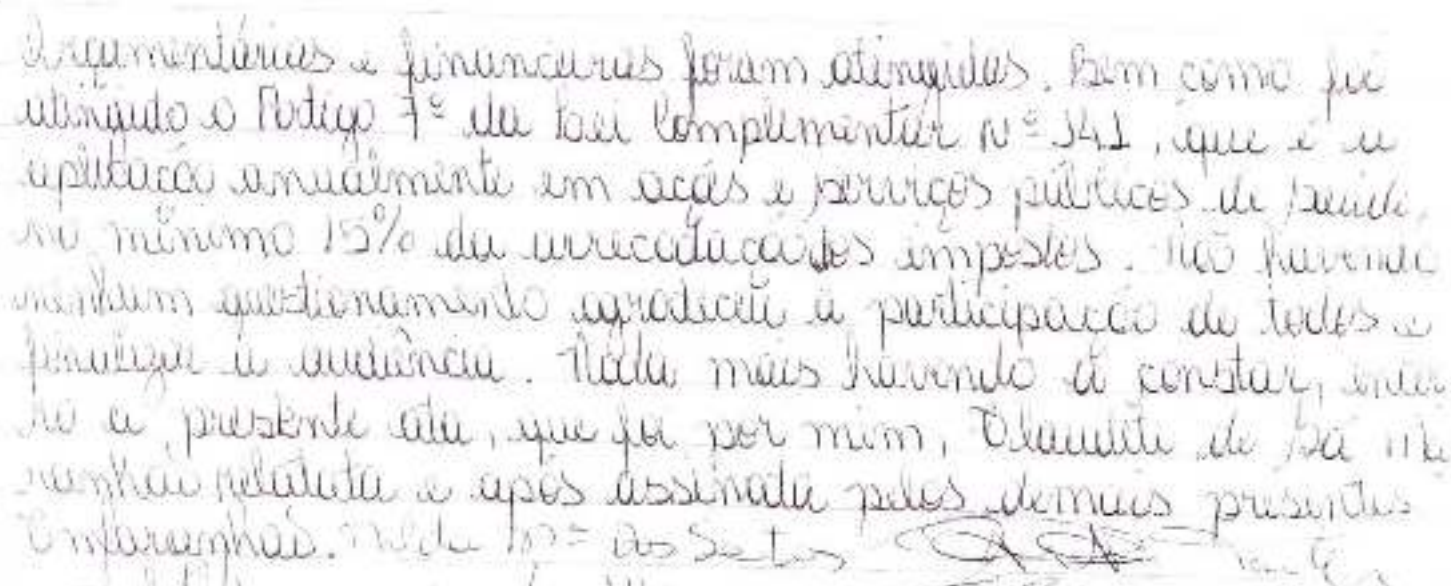 Orçamentárias e financeiras foram atingidas. Bem como foi
atingido o Artigo 7º da Lei Complementar Nº 141, que é a
aplicação anualmente em ações e serviços públicos de saúde,
no mínimo 15% da arrecadação dos impostos. Não havendo
nenhum questionamento agradeceu a participação de todos e
finalizou a audiência. Nada mais havendo a constar, encer
ro a presente ata, que foi por mim, Claudete de Sá Ma
ranhão relatada e após assinada pelos demais presentes
dos Santos